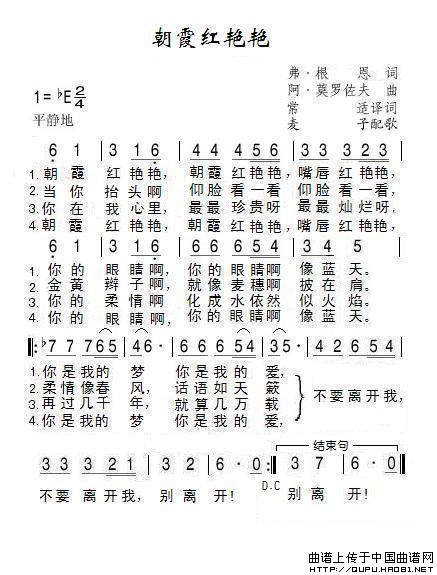 朝霞红艳艳
弗·根 恩 词
1=♭E 2/4
阿·莫罗佐夫 曲
平静地
常 适译词
麦 子配歌
6 1 | 3 1 6 | 4 4 4 5 6 | 3 3 3 2 3 |
1. 朝 霞 红 艳艳, 朝 霞 红 艳艳, 嘴 唇 红 艳艳,
2. 当 你 抬 头啊 仰 脸 看 一看 仰 脸 看 一看
3. 你 在 我 心里, 最 最 珍 贵呀 最 最 灿 烂呀,
4. 朝 霞 红 艳艳, 朝 霞 红 艳艳, 嘴 唇 红 艳艳,
6 1 | 3 1 6 | 1 2 3 4 6 | 3 4 5 |
1. 你 的 眼 睛啊, 你 的 眼 睛啊 像 蓝 天。
2. 金 黄 辫 子啊, 就 像 麦 穗啊 披 在 肩。
3. 你 的 柔 情啊 化 成 水 依然 似 火 焰。
4. 你 的 眼 睛啊, 你 的 眼 睛啊 像 蓝 天。
1. 你 是 我的 梦 你 是 我 的 爱,
2. 柔 情 像春 风, 话 语 如 天 籁
不 要 离 开 我,
3. 再 过 几千 年, 就 算 几 万 载
4. 你 是 我的 梦 你 是 我 的 爱,
结束句
3 3 3 2 1 | 3 3 3 2 1 | 3 2 | 6· 0 :| 3 7 | 6· 0 ‖
D.C
不 要 离 开 我, 不 要 离 开 我, 别 离 开! 别 离 开!
曲谱上传于中国曲谱网
http://QUPU.HAO81.NET